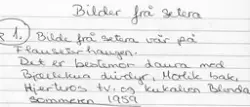 Bilder frå setera
1. Bilde frå setera vår på
Flauseterhaugen.
Det er bestemor daura med
bak,
Hjartros t.v. og kukalven Blenda
sommeren 1959